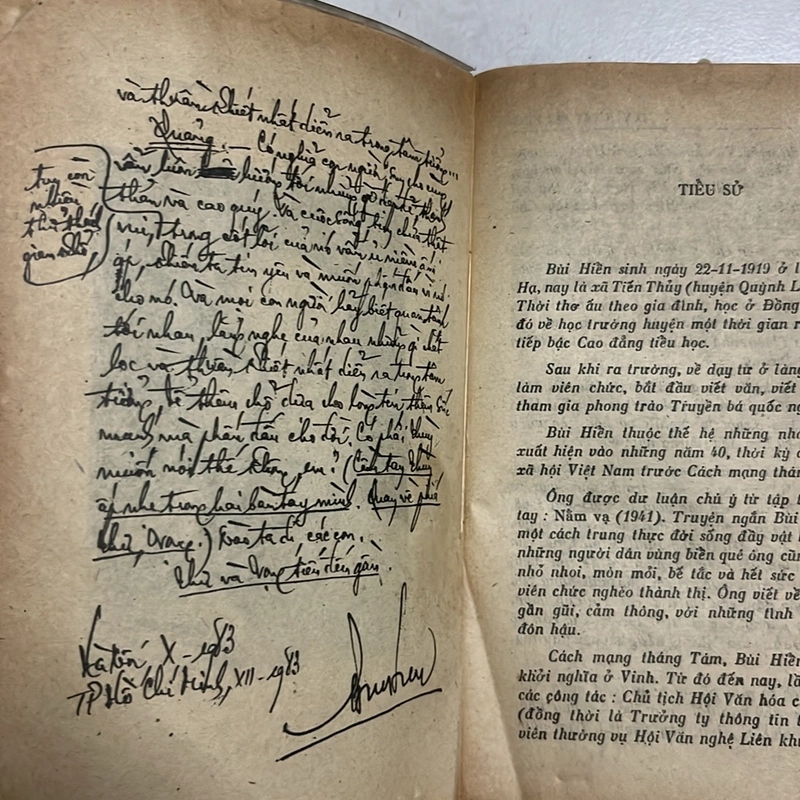 và thuần khiết nhất diễn ra trong tâm tưởng...
Quảng: — Có nghĩa con người, suy cho cùng
vẫn luôn hướng tới những gì
thân và cao quý. Và cuộc sống tuy chưa thật
vui, trong cốt lõi của nó vẫn
tuy còn
nhiều
thử thách
gian khổ,
áp, khiến ta tin yêu và muốn phấn đấu vì nó
cho nó. Và mọi con người hãy biết quan tâm
tới nhau, lắng nghe của nhau những gì chắt
lọc và thuần khiết nhất diễn ra trong tâm
tưởng, để thêm chỗ dựa cho lòng tin, thêm sức
mạnh mà phấn đấu cho đời. Có phải
muốn nói thế không, em? (Cầm tay
áp nhẹ trong hai bàn tay mình. Quay về phía
) Đào ta đi các con.
và tiến đến gần.
X-1983
TP Hồ Chí Minh, XII-1983
TIỂU SỬ
Bùi Hiền sinh ngày 22-11-1919 ở
Hạ, nay là xã Tiến Thủy (huyện Quỳnh L
Thời thơ ấu theo gia đình, học ở Đồng
đó về học trường huyện một thời gian r
tiếp bậc Cao đẳng tiểu học.
Sau khi ra trường, về dạy tư ở làng
làm viên chức, bắt đầu viết văn, viết
tham gia phong trào Truyền bá quốc ng
Bùi Hiền thuộc thế hệ những nh
xuất hiện vào những năm 40, thời kỳ
xã hội Việt Nam trước Cách mạng thán
Ông được dư luận chú ý từ tập t
tay : Nằm vạ (1941). Truyện ngắn Bùi
một cách trung thực đời sống đầy vật
những người dân vùng biển quê ông cũn
nhỏ nhoi, mòn mỏi, bế tắc và hết sức
viên chức nghèo thành thị. Ông viết về
gần gũi, cảm thông, với những tình
đôn hậu.
Cách mạng tháng Tám, Bùi Hiền
khởi nghĩa ở Vinh. Từ đó đến nay, lầ
các công tác : Chủ tịch Hội Văn hóa c
(đồng thời là Trưởng ty thông tin t
viên thường vụ Hội Văn nghệ Liên khu